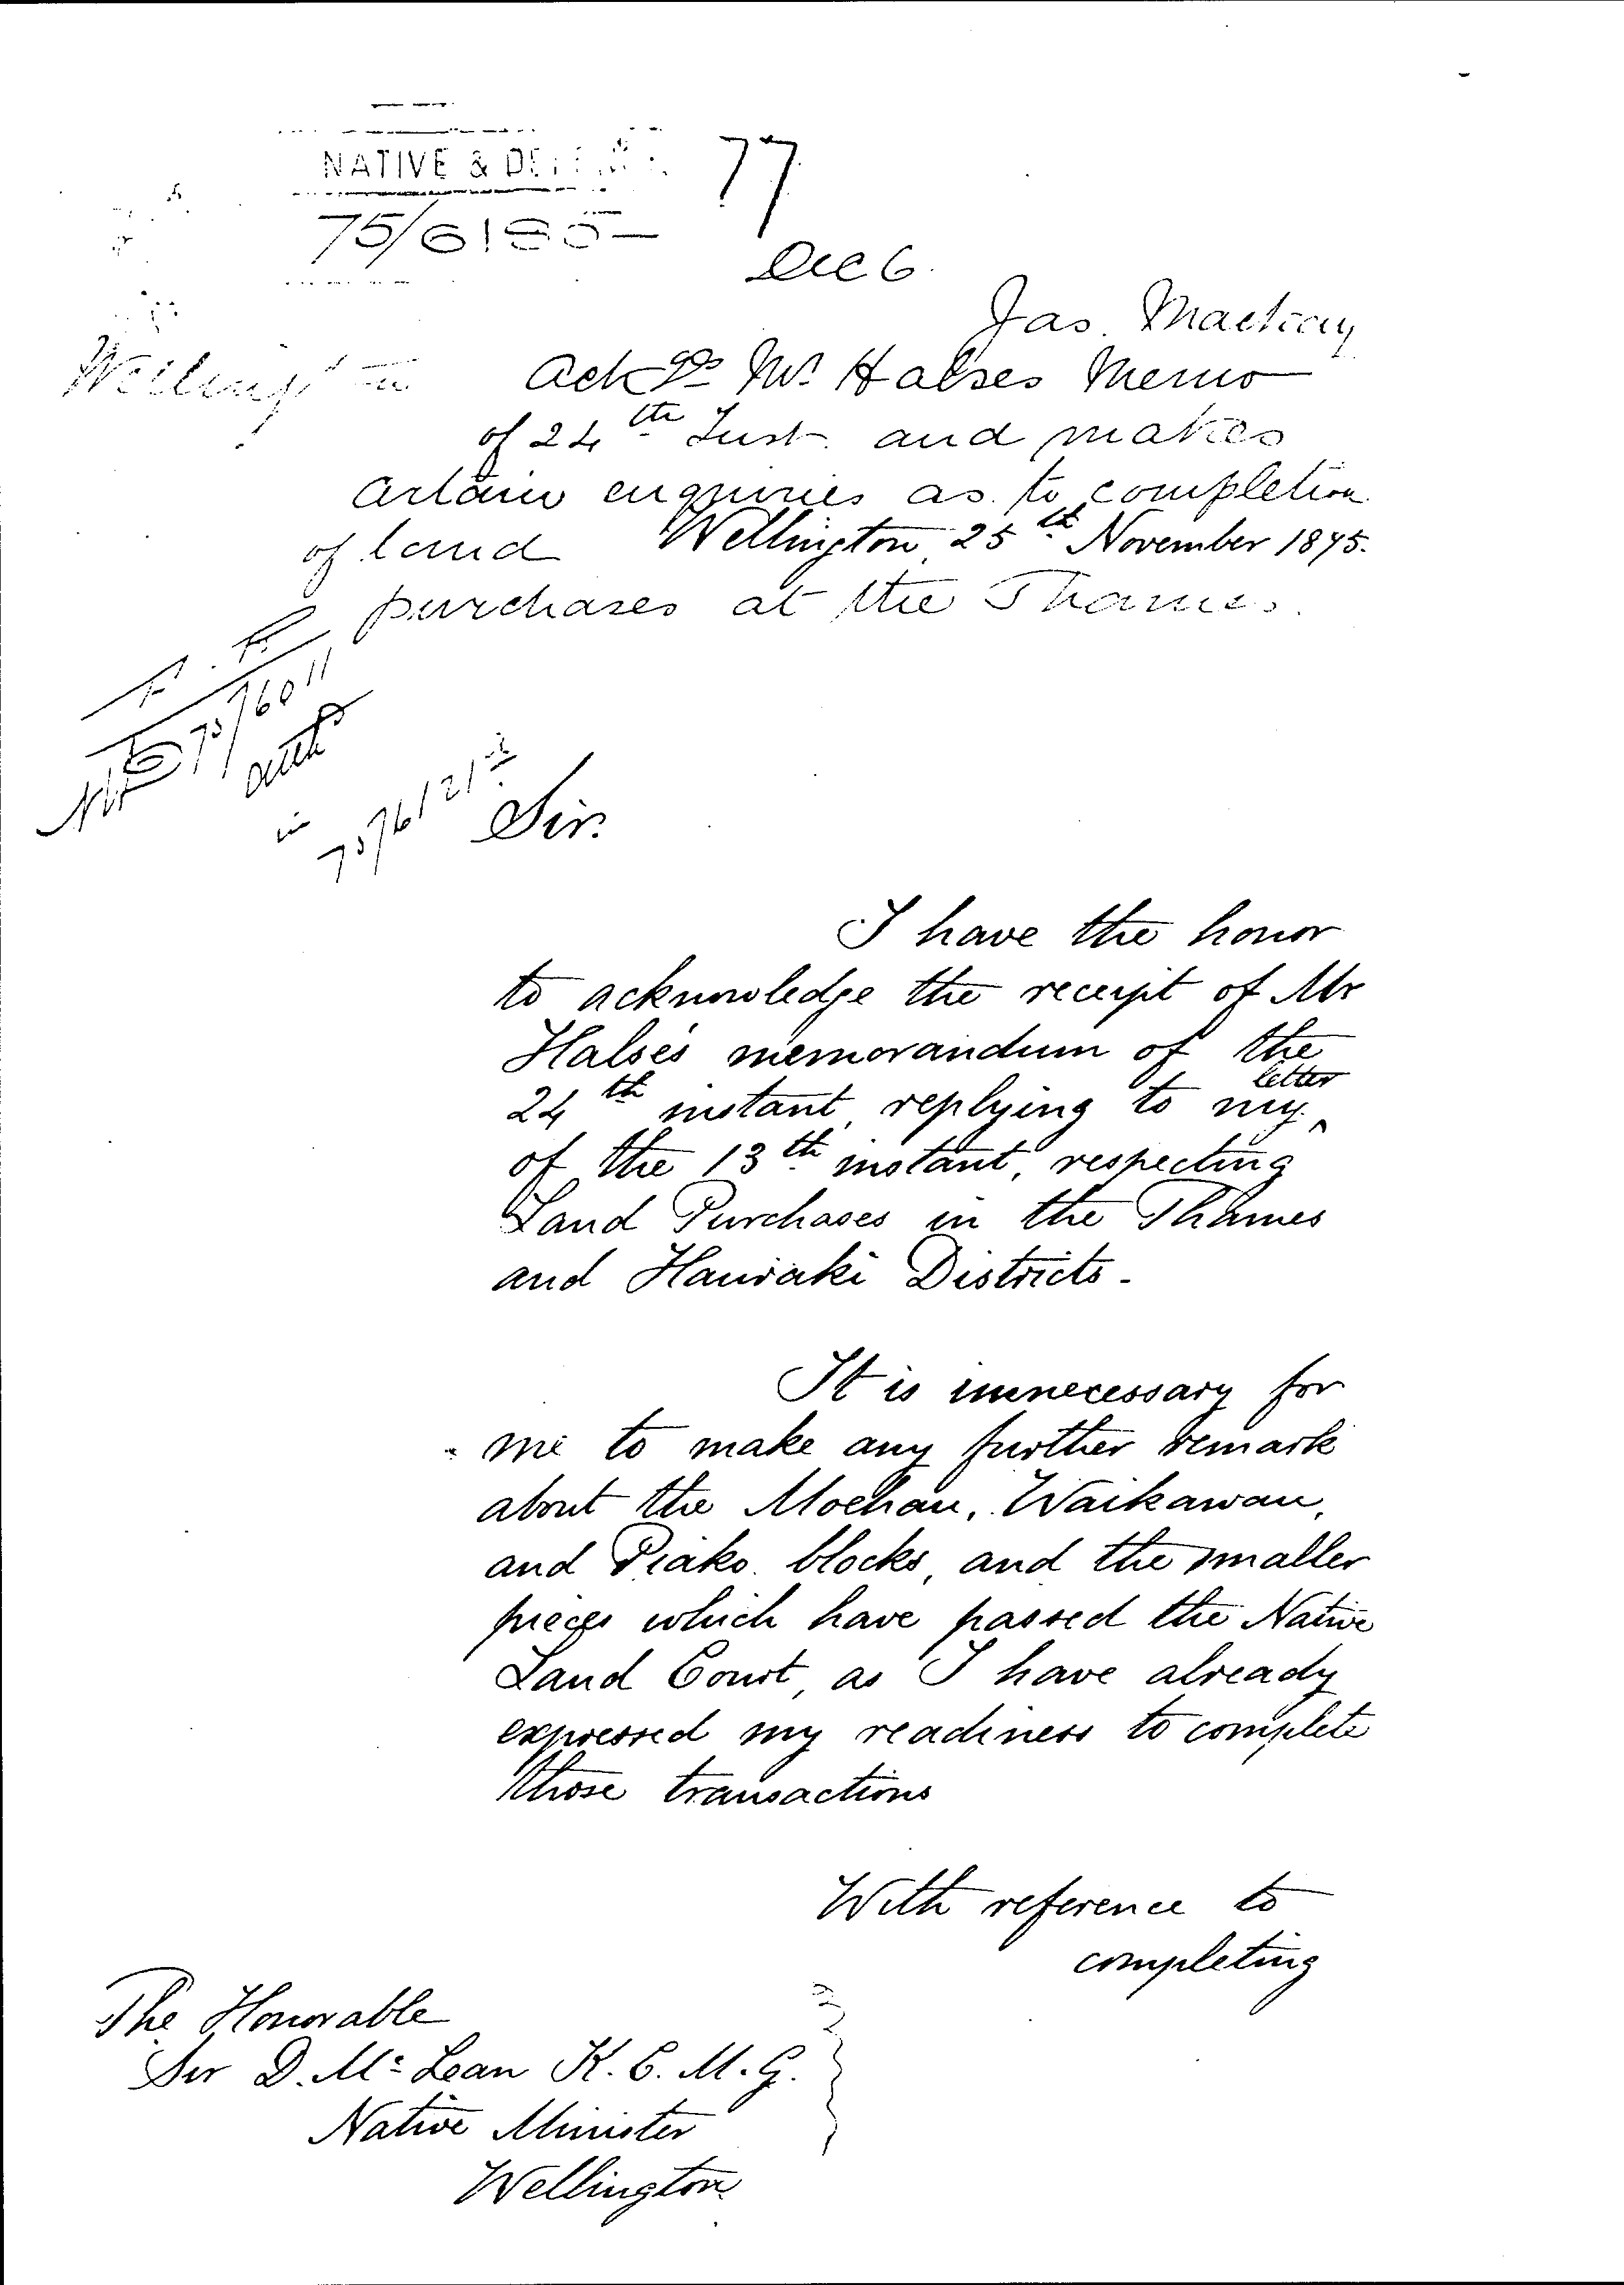 NATIVE & DE
77
75/6185
Dec 6.
Jas. Mackay
Wellington
Ackgs Mr Halses Memo
of 24th Inst. and makes
certain enquiries as to completion
of land
Wellington 25th November 1875.
purchases at the Thames.
Sir.
I have the honor
to acknowledge the receipt of Mr
Halse's memorandum of the
letter
24th instant, replying to my ^
of the 13th instant, respecting
Land Purchases in the Thames
and Hauraki Districts -
It is unnecessary for
me to make any further remark
about the Moehau, Waikawau,
and Piako blocks, and the smaller
pieces which have passed the Native
Land Court, as I have already
expressed my readiness to complete
those transactions
With reference to
completing
The Honorable
Sir D. Mc Lean K.C.M.G.
Native Minister
Wellington.